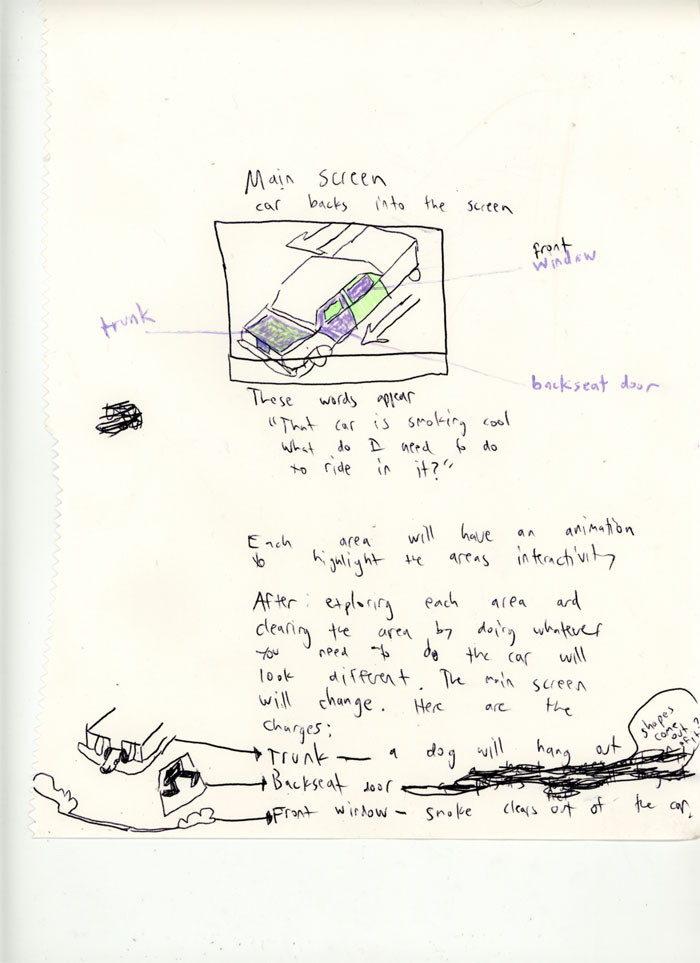 Main screen
car backs into the screen
front
window
trunk
backseat door
These words appear
"That car is smoking cool
what do I need to do
to ride in it?"
Each area will have an animation
to highlight the areas interactivity
After exploring each area and
clearing the area by doing whatever
you need to do the car will
look different. The main screen
will change. Here are the
changes:
shapes
come
out
of it?
Trunk — a dog will hang out
Backseat door
Front window — smoke clears out of the car.